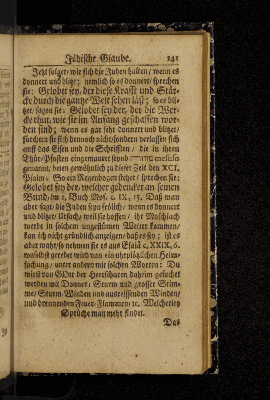 Jüdische Glaube. 141
Jetzt folget/ wie sich die Juden halten/ wenn es
donnert und blitzt; nemlich so es donnert/ sprechen
sie: Gelobet sey, der diese Kraffte und Stär-
cke durch die gantze Welt sehen läst; so es bli-
tzet, sagen sie: Gelobet sey der, der die Wer-
cke thut, wie sie im Anfang geschaffen wor-
den sind; wenn es gar sehr donnert und blitzet/
fürchten sie sich dennoch nicht/ sondern verlassen sich
auff das Esen und die Schrifften/ die in ihren
Thür-Pfosten eingemauret seynd
genannt/ beten gewöhnlich zu dieser Zeit den XCI.
Psalm. So ein Regenbogen stehet/ sprechen sie:
Gelobet sey der, welcher gedencket an seinen
Bund, im 1. Buch Mos. c. IX, 15. Daß man
aber sagt, die Juden seyn frölich/ wenn es donnert
und blitzet/ Ursach/ weil sie hoffen/ ihr Moschiach
werde in solchem ungestümen Wetter kommen/
kan ich nicht gründlich anzeigen/ daß es sey; ist es
aber wahr/ so nehmen sie es aus Esaiä c. XXIX, 6.
woselbst geredet wird von ein
suchung/ unter andern mit solchen Worten: Du
wirst von GOtt der Heerscharen daheim gesuchet
werden mit Donner/ Sturm und grosser Stim-
me/ Sturm-Winden und ausreissenden Winden/
und brennenden Feuer-Flammen: Welcherley
Sprüche man mehr findet.
Das